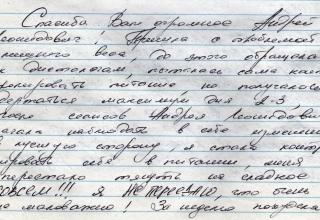 Спасибо Вам огромное Андрей
Леонидович! Пришла с проблемой
лишнего веса, до этого обращалась
к диетологам, пыталась сама конт
ролировать питание, но получалось
держаться максимум дня 2-3,
после сеансов Андрея Леонидови
начала наблюдать в себе изменения
в лучшую сторону, я стала контр
лировать себя в питании, меня
перестало тянуть на сладкое
совсем!!! Я не что
маловажно! За неделю похудела